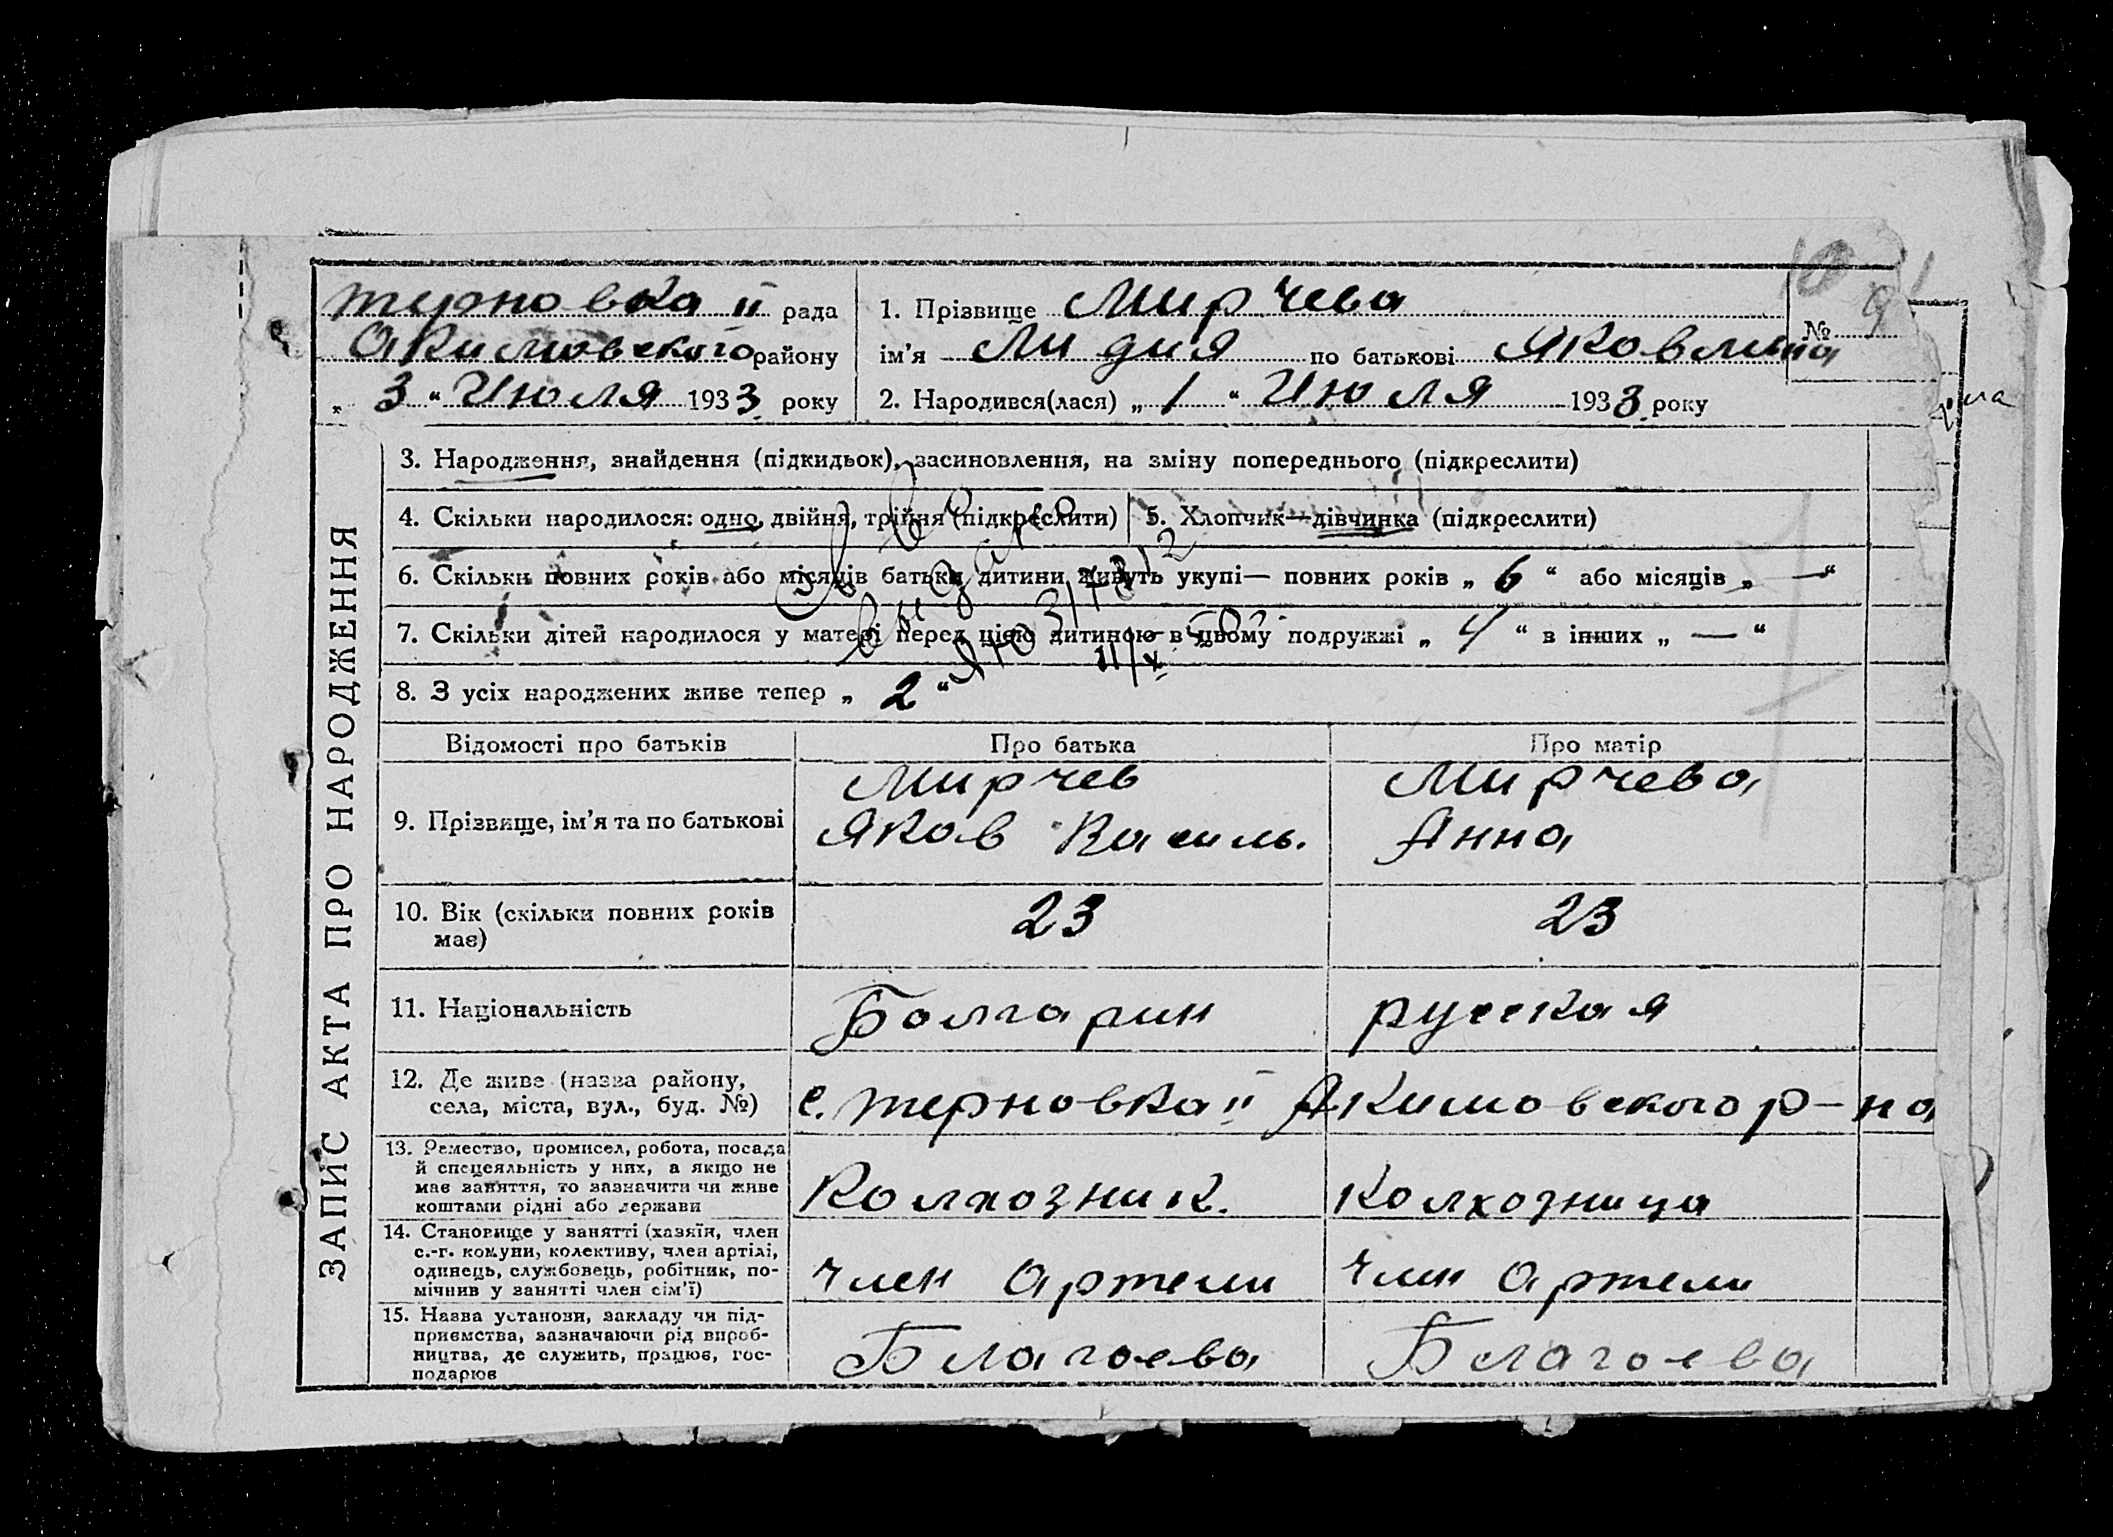 терновка II рада
Акимовского району
„ 3 “ Июля 1933 року
1. Прізвище Мирчева
№ 9
ім’я Лидия по батькові Яковлина
2. Народився(лася) „ 1 “ Июля 1933 року
ЗАПИС АКТА ПРО НАРОДЖЕННЯ
3. Народження, знайдення (підкидьок), засиновлення, на зміну попереднього (підкреслити)
4. Скільки народилося: одно, двійня, трійня (підкреслити)
5. Хлопчик—дівчинка (підкреслити)
6. Скільки повних років або місяців батьки дитини живуть укупі— повних років „ 6 “ або місяців „ — “
7. Скільки дітей народилося у матері перед цією дитиною в цьому подружжі „ 4 “ в інших „ — “
8. З усіх народжених живе тепер „ 2 “
Відомості про батьків
Про батька
Про матір
9. Прізвище, ім’я та по батькові
Мирчев
Яков Василь.
Мирчева
Анна
10. Вік (скільки повних років
має)
23
23
11. Національність
Болгарин
русская
12. Де живе (назва району,
села, міста, вул., буд. №)
с. терновка II Акимовского р-на
13. Ремество, промисел, робота, посада
й спецсяльність у них, а якщо не
має заняття, то зазначити чи живе
коштами рідні або держави
Колхозник.
Колхозница
14. Становище у занятті (хазяїн, член
с.-г. комуни, колективу, член артілі,
одинець, службовець, робітник, по-
мічнив у занятті член сім’ї)
член Артели
член Артели
15. Назва установи, закладу чи під-
приємства, зазначаючи рід вироб-
ництва, де служить, працює, гос-
подарює
Благоева
Благоева